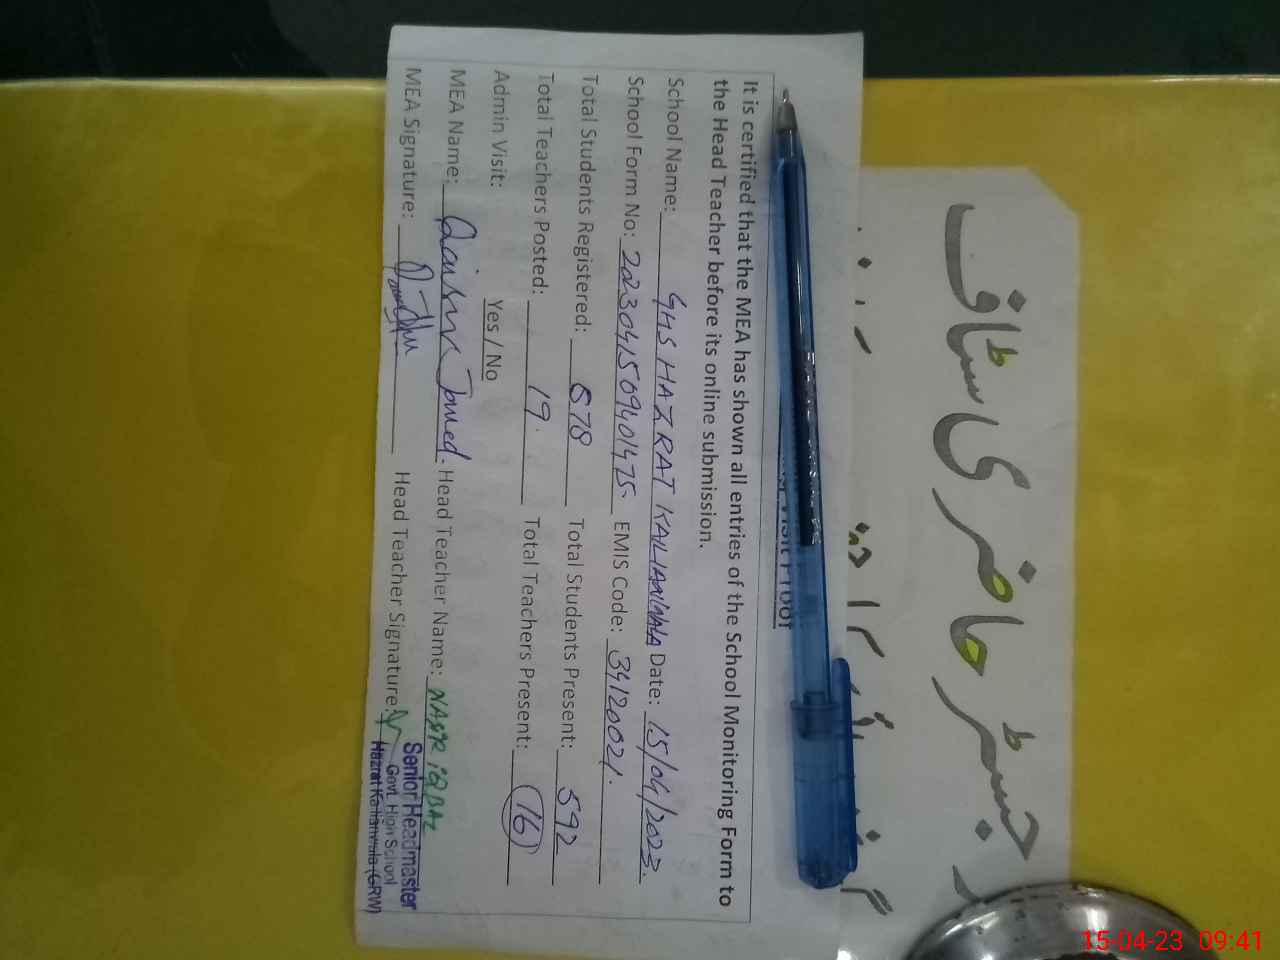 Visit Proof
It is certified that the MEA has shown all entries of the School Monitoring Form to
the Head Teacher before its online submission.
School Name: GHS HAZRAT KAILIANWALA Date: 15/04/2023.
School Form No: 2023041509401475. EMIS Code: 34120021.
Total Students Registered: 678 Total Students Present: 592
Total Teachers Posted: 19. Total Teachers Present: 16
Admin Visit: Yes / No
MEA Name: Javed. Head Teacher Name: NASIR IQBAL
MEA Signature: Head Teacher Signature:
Senior Headmaster
Govt. High School
Hazrat Kailianwala (GRW)
رجسٹر حاضری سٹاف
15-04-23 09:41